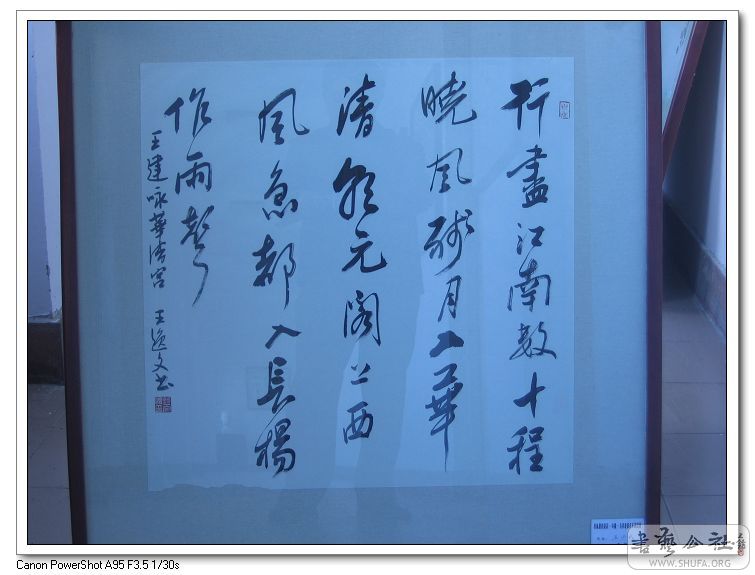 行盡江南數十程
曉風殘月入華
清朝元閣上西
風急都入長楊
作雨聲
王建咏華清宮 王逸文书
書藝公社
WWW.SHUFA.ORG
Canon PowerShot A95 F3.5 1/30s